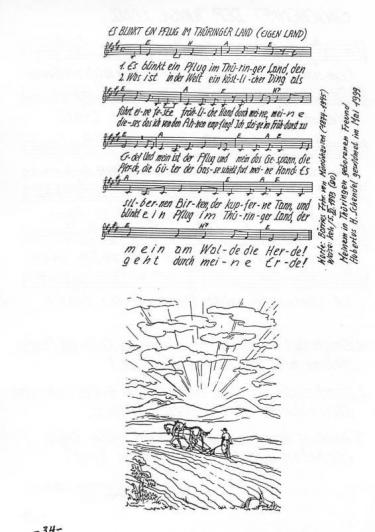 ES BLINKT EIN PFLUG IM THÜRINGER LAND (EIGEN LAND)
E H⁷ A E
1. Es blinkt ein Pflug im Thü-rin-ger Land, den
2. Was ist in der Welt ein köst-li-cher Ding als
führt ei-ne fe-ste fröh-li-che Hand durch mei-ne, mei-ne
die-ses das ich von den Ah-nen empfing! Ich stei-ge in Früh dunst zu
Er-de! Und mein ist der Pflug und mein das Ge-spann, die
Pfer-de, die Gü-ter der Gas-se
sil-ber-nen Bir-ken, der kup-fer-ne Tann, und
blinkt ein Pflug im Thü-rin-ger Land, der
mein am Wal-de die Her-de!
geht durch mei-ne Er-de!
Worte: Börries Frhr. von Münchhausen (1874-1945)
Meinem in Thüringen geborenen Freund
Hubertus H. Schendel gewidmet im Mai 1999
-34-